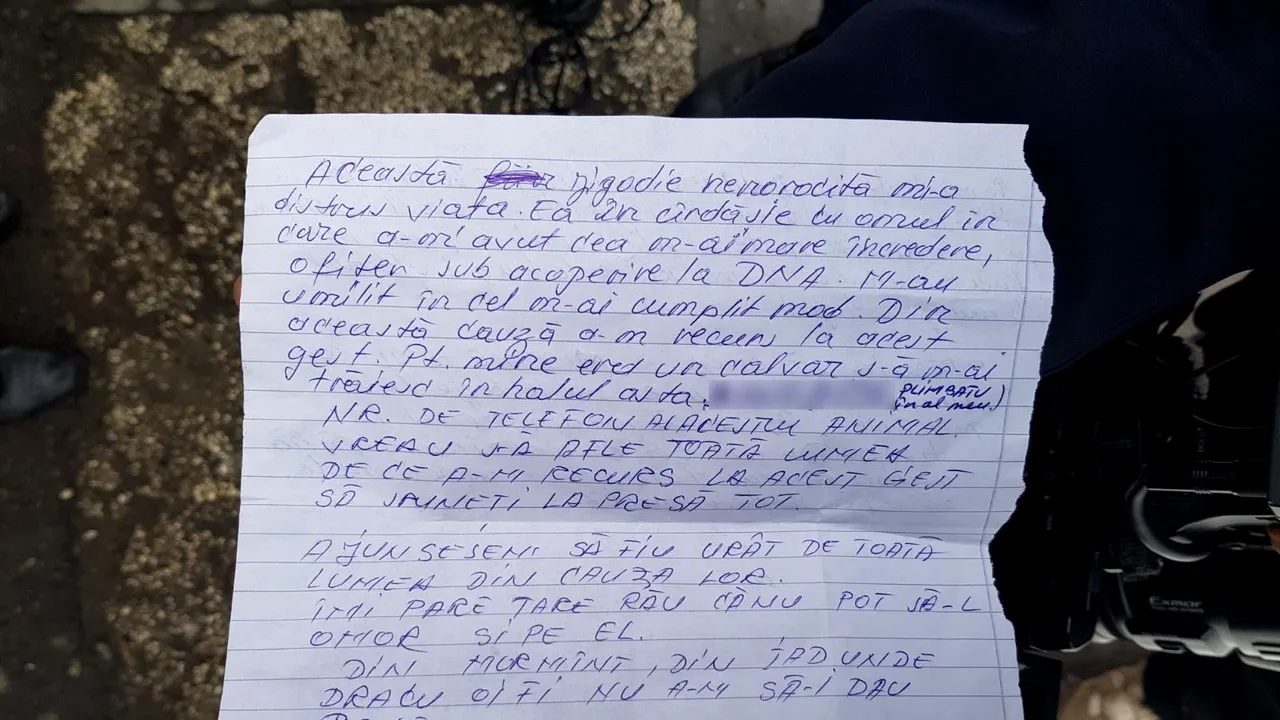 Această jigodie nenorocită mi-a
distrus viata. Ea în cîrdășie cu omul în
care a-m avut cea m-ai mare încredere,
ofițer sub acoperire la DNA. M-au
umilit în cel m-ai cumplit mod. Din
această cauză a-m recurs la acest
gest. Pt. mine era un calvar s-ă m-ai
trăiesc în halul asta.
PLIMBATU
în al meu)
NR. DE TELEFON AL ACESTUI ANIMAL.
VREAU S-Ă AFLE TOATĂ LUMEA
DE CE A-M RECURS LA ACEST GEST
SĂ SPUNEȚI LA PRESĂ TOT.
AJUNSESEM SĂ FIU URÂT DE TOATĂ
LUMEA DIN CAUZA LOR.
ÎMI PARE TARE RĂU CĂ NU POT SĂ-L
OMOR SI PE EL.
DIN MORMÎNT, DIN IAD UNDE
DRACU OI FI NU A-M SĂ-I DAU
Exmor